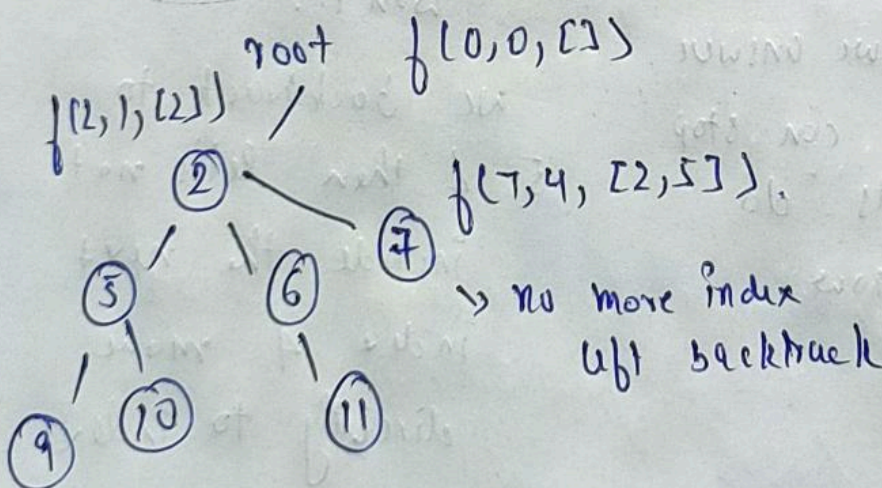 root f(0,0,[])
f(2,1,[2])
2
f(7,4,[2,5]).
5 6 7
↳ no more index
left backtrack
9 10 11